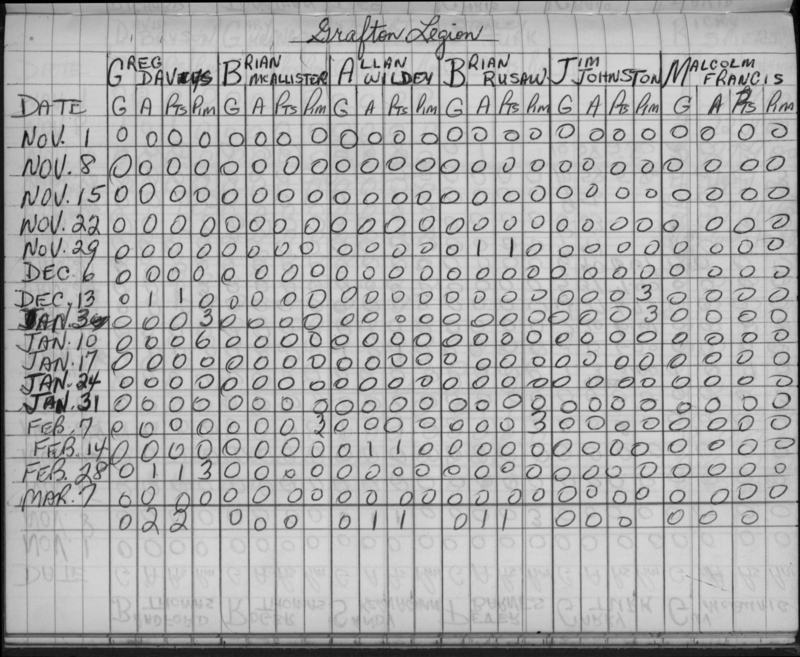 Grafton Legion
GREG BRIAN ALLAN BRIAN JIM MALCOLM
DAVEYS MCALLISTER WILDEY RUSAW JOHNSTON FRANCIS
DATE G A PTS PIM G A PTS PIM G A PTS PIM G A PTS PIM G A PTS PIM G A PTS PIM
NOV. 1 0 0 0 0 0 0 0 0 0 0 0 0 0 0 0 0 0 0 0 0 0 0 0 0
NOV. 8 0 0 0 0 0 0 0 0 0 0 0 0 0 0 0 0 0 0 0 0 0 0 0 0
NOV. 15 0 0 0 0 0 0 0 0 0 0 0 0 0 0 0 0 0 0 0 0 0 0 0 0
NOV. 22 0 0 0 0 0 0 0 0 0 0 0 0 0 0 0 0 0 0 0 0 0 0 0 0
NOV. 29 0 0 0 0 0 0 0 0 0 0 0 0 0 1 1 0 0 0 0 0 0 0 0 0
DEC. 6 0 0 0 0 0 0 0 0 0 0 0 0 0 0 0 0 0 0 0 0 0 0 0 0
DEC. 13 0 1 1 0 0 0 0 0 0 0 0 0 0 0 0 0 0 0 0 3 0 0 0 0
JAN. 3 0 0 0 3 0 0 0 0 0 0 0 0 0 0 0 0 0 0 0 3 0 0 0 0
JAN. 10 0 0 0 6 0 0 0 0 0 0 0 0 0 0 0 0 0 0 0 0 0 0 0 0
JAN. 17 0 0 0 0 0 0 0 0 0 0 0 0 0 0 0 0 0 0 0 0 0 0 0 0
JAN. 24 0 0 0 0 0 0 0 0 0 0 0 0 0 0 0 0 0 0 0 0 0 0 0 0
JAN. 31 0 0 0 0 0 0 0 0 0 0 0 0 0 0 0 0 0 0 0 0 0 0 0 0
FEB. 7 0 0 0 0 0 0 0 3 0 0 0 0 0 0 0 3 0 0 0 0 0 0 0 0
FEB. 14 0 0 0 0 0 0 0 0 0 1 1 0 0 0 0 0 0 0 0 0 0 0 0 0
FEB. 28 0 1 1 3 0 0 0 0 0 0 0 0 0 0 0 0 0 0 0 0 0 0 0 0
MAR. 7 0 0 0 0 0 0 0 0 0 0 0 0 0 0 0 0 0 0 0 0 0 0 0 0
0 2 2 0 0 0 0 1 1 0 1 1 0 0 0 0 0 0